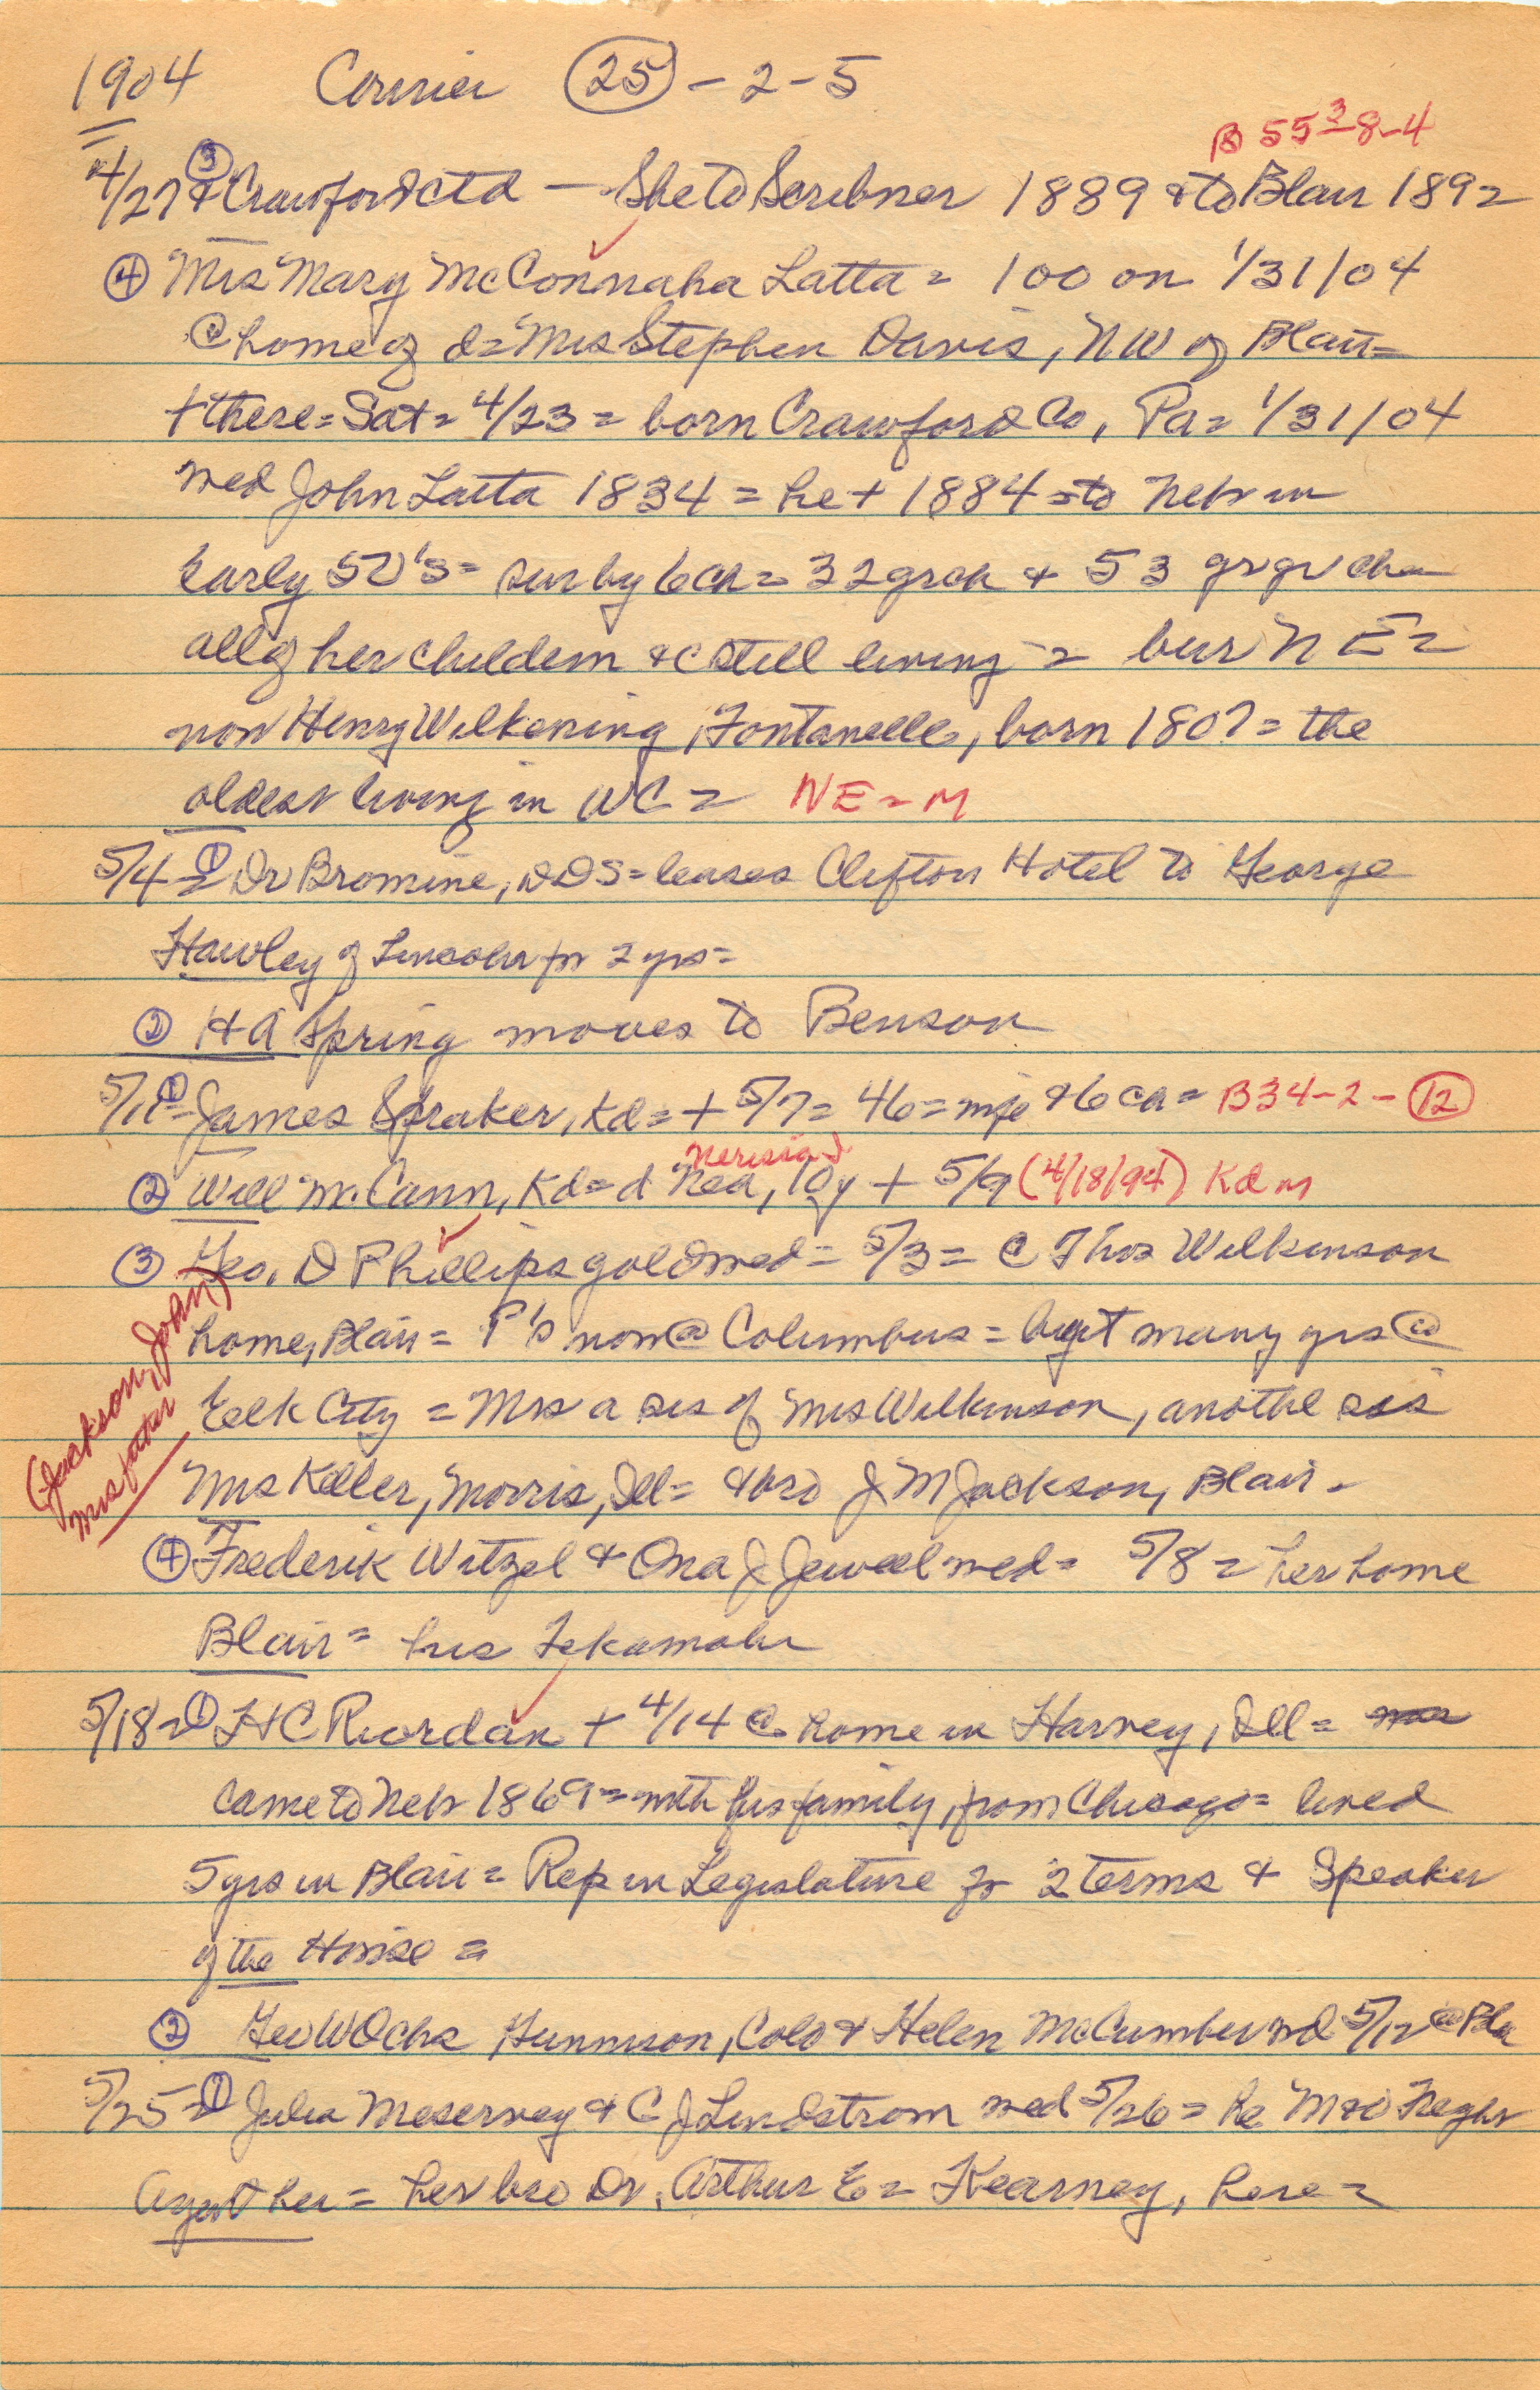 1904 Courier (25) - 2 - 5
B 55 3-8-4
4/27 ③ & Crawford ctd — She to Scribner 1889 & to Blair 1892
④ Mrs Mary McConnaha Latta = 100 on 1/31/04
@ home of d = Mrs Stephen Davis, NW of Blair =
+ there = Sat = 4/23 = born Crawford Co, Pa = 1/31/04
med John Latta 1834 = he + 1884 = to Nebr in
Early 50's = sur by 6 ch = 32 grch + 53 gr gr ch =
all of her childern &c still living = bur N E =
now Henry Wilkening, Fontanelle, born 180? = the
oldest living in WC = NE = M
5/4 = ① Dr Bromine, DDS = leases Clifton Hotel to George
Hawley of Lincoln for 2 yrs =
② HA Spring moves to Benson
5/11 = ① James Spraker, Kd = + 5/7 = 46 = wife & 6 ch = B34-2-(12)
Nerissa J.
② Will McCann, Kd = d Nea, 10y + 5/9 (4/18/94) Kd m
③ Geo. D Phillips gold wed = 5/3 = @ Thos Wilkinson
home, Blair = P's now @ Columbus = bgt many yrs @
(Jackson, John)
Mrs father
Elk City = Mrs a sis of Mrs Wilkinson, anothe sis
Mrs Keller, Morris, Ill = & bro J M Jackson, Blair -
④ Frederik Witzel & Ona J Jewell wed = 5/8 = her home
Blair = his Tekamah
5/18 = ① H C Riordan + 4/14 @ home in Harvey, Ill =
came to Nebr 1869 = with his family, from Chicago = lived
5 yrs in Blair = Rep in Legislature for 2 terms & Speaker
of the House =
② Geo W Ochs, Gunnison, Colo & Helen McCumber wd 5/12 @ Bla
5/25 = ① Julia Meservey & C J Lindstrom wed 5/26 = he M&O Freght
Agent her = her bro Dr. Arthur E = Kearney, here =